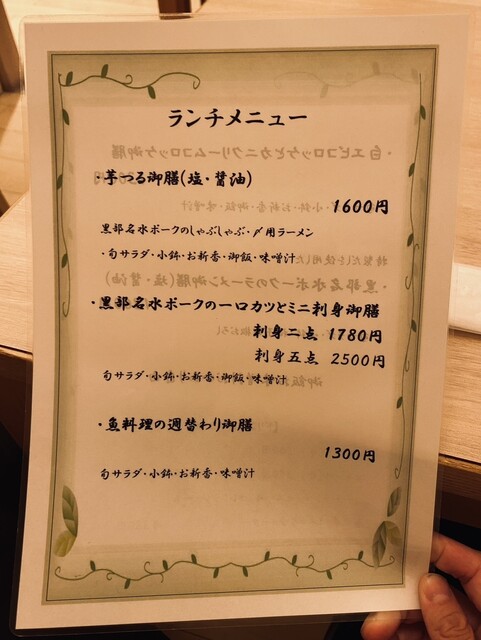 ランチメニュー
・芋つる御膳(塩・醤油)
1600円
黒部名水ポークのしゃぶしゃぶ・〆用ラーメン
・旬サラダ・小鉢・お新香・御飯・味噌汁
・黒部名水ポークの一口カツとミニ刺身御膳
刺身二点 1780円
刺身五点 2500円
旬サラダ・小鉢・お新香・御飯・味噌汁
・魚料理の週替わり御膳
1300円
旬サラダ・小鉢・お新香・味噌汁